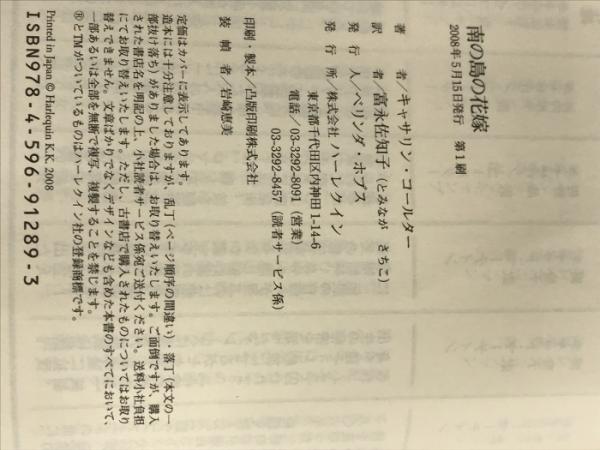 南の島の花嫁
2008年5月15日発行　第1刷
著　者／キャサリン・コールター
訳　者／富永佐知子（とみなが　さちこ）
発　行　人／ベリンダ・ホブス
発　行　所／株式会社 ハーレクイン
東京都千代田区内神田 1-14-6
電話／03-3292-8091（営業）
03-3292-8457（読者サービス係）
印刷・製本／凸版印刷株式会社
装　幀　者／岩崎恵美
定価はカバーに表示してあります。
造本には十分注意しておりますが、乱丁（ページ順序の間違い）・落丁（本文の一
部抜け落ち）がありました場合は、お取り替えいたします。ご面倒ですが、購入
された書店名を明記の上、小社読者サービス係宛ご送付ください。送料小社負担
にてお取り替えいたします。ただし、古書店で購入されたものについてはお取り
替えできません。文章ばかりでなくデザインなども含めた本書のすべてにおいて、
一部あるいは全部を無断で複写、複製することを禁じます。
®とTMがついているものはハーレクイン社の登録商標です。
Printed in Japan © Harlequin K.K. 2008
ISBN978-4-596-91289-3